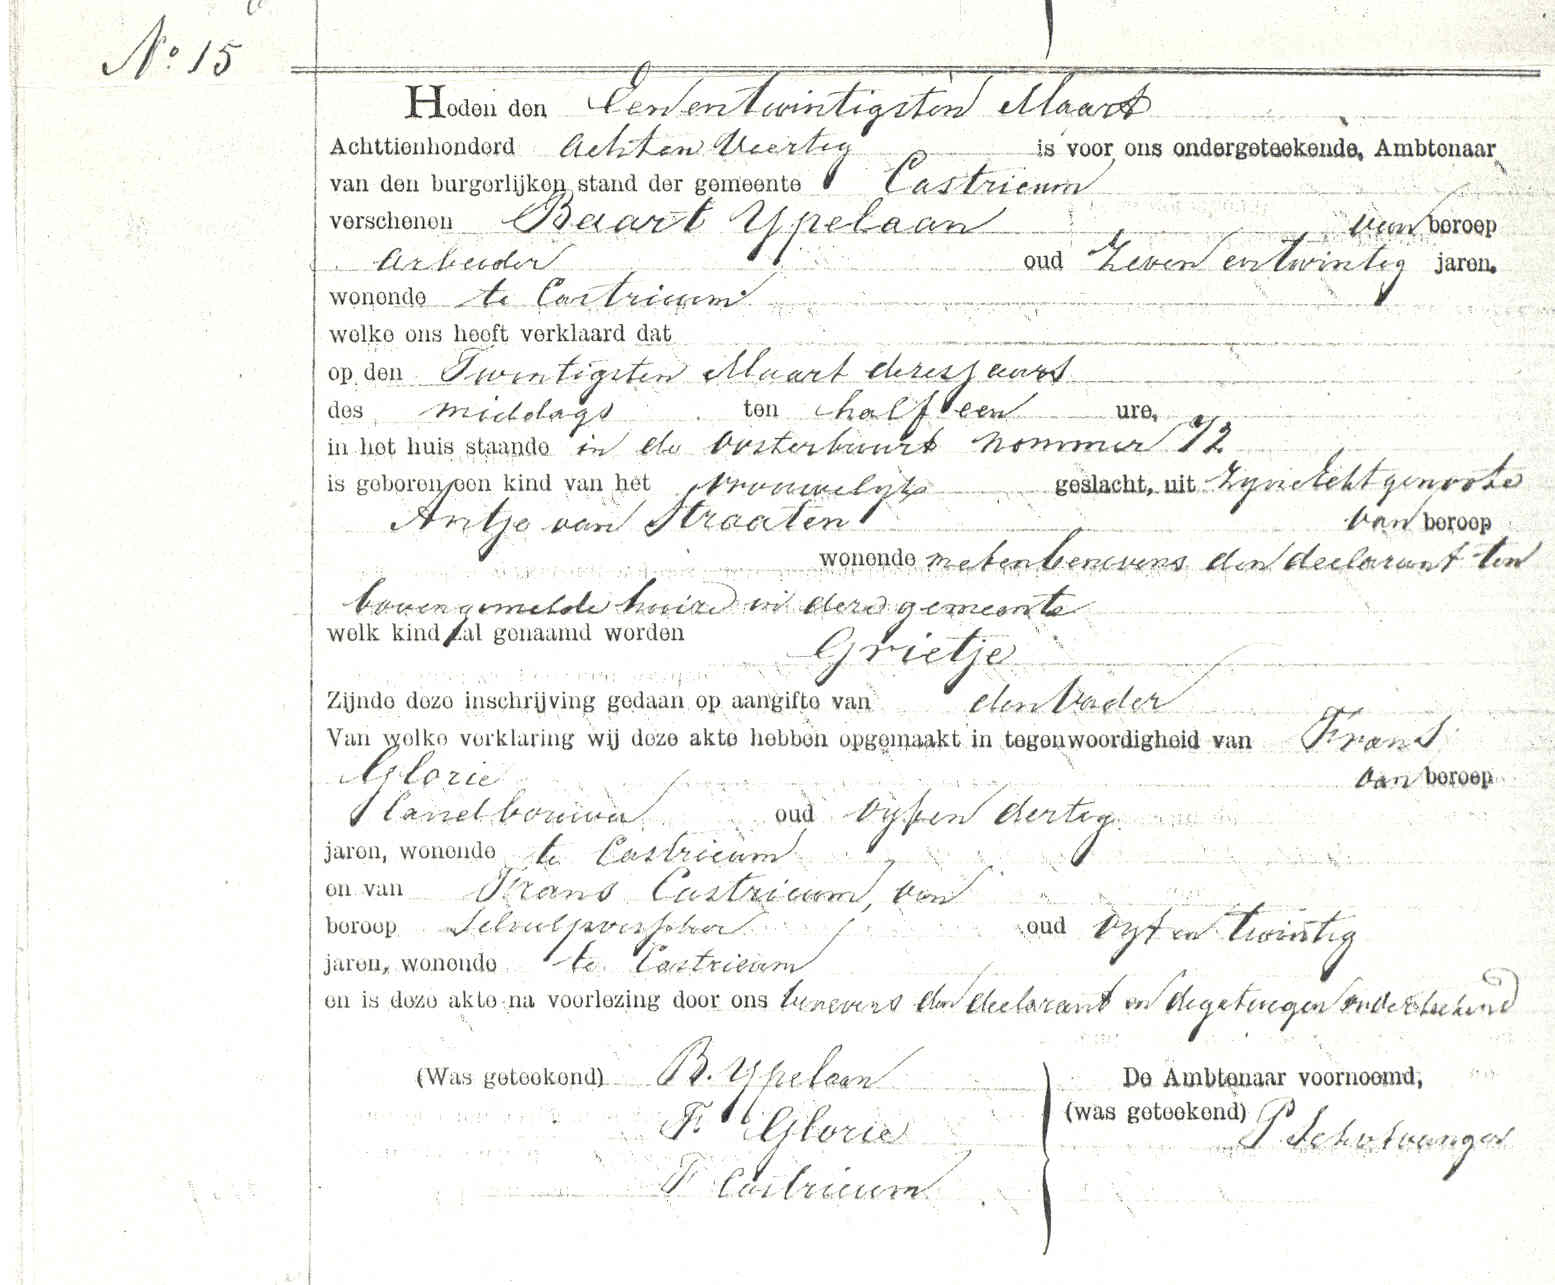 No. 15
Heden den Eenentwintigsten Maart
Achttienhonderd Achten Veertig is voor ons ondergeteekende, Ambtenaar
van den burgerlijken stand der gemeente Castricum
verschenen Baart Ypelaan van beroep
Arbeider oud Zeven en twintig jaren,
wonende te Castricum
welke ons heeft verklaard dat
op den Twintigsten Maart dezes jaars
des middags ten half een ure,
in het huis staande in de Oosterbuurt nommer 72
is geboren een kind van het vrouwelijk geslacht, uit zyne Echtgenoote
Antje van Straaten van beroep
wonende met en benevens den declarant ten
bovengemelde huize in deze gemeente
welk kind zal genaamd worden
Grietje
Zijnde deze inschrijving gedaan op aangifte van den Vader
Van welke verklaring wij deze akte hebben opgemaakt in tegenwoordigheid van Frans
Glorie van beroep
landbouwer oud vyf en dertig
jaren, wonende te Castricum
en van Frans Castricum, van
beroep oud vyf en twintig
jaren, wonende te Castricum
en is deze akte na voorlezing door ons benevens den declarant en de getuigen onderteekend
(Was geteekend) B. Ypelaan
De Ambtenaar voornoemd,
F. Glorie
(was geteekend) P Schotvanger
F Castricum